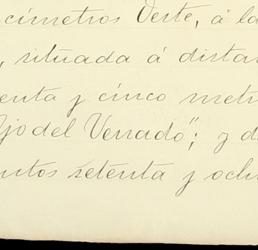 címetros Oeste, á la
, situada á distan
enta y cinco metr
Ojo del Venado"; y d
ntos setenta y och